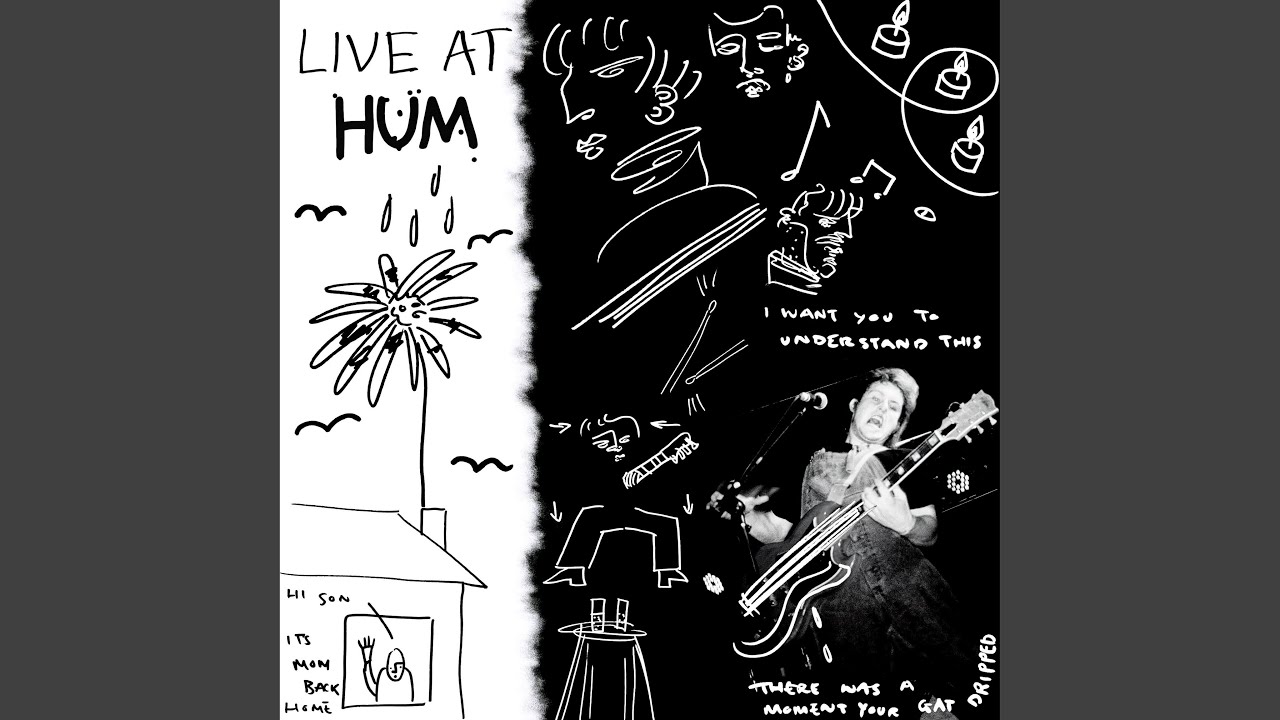 LIVE AT
HÜM
I WANT YOU TO
UNDERSTAND THIS
HI SON
ITS
MOM
BACK
HOME
THERE WAS A
MOMENT YOUR GAT DRIPPED